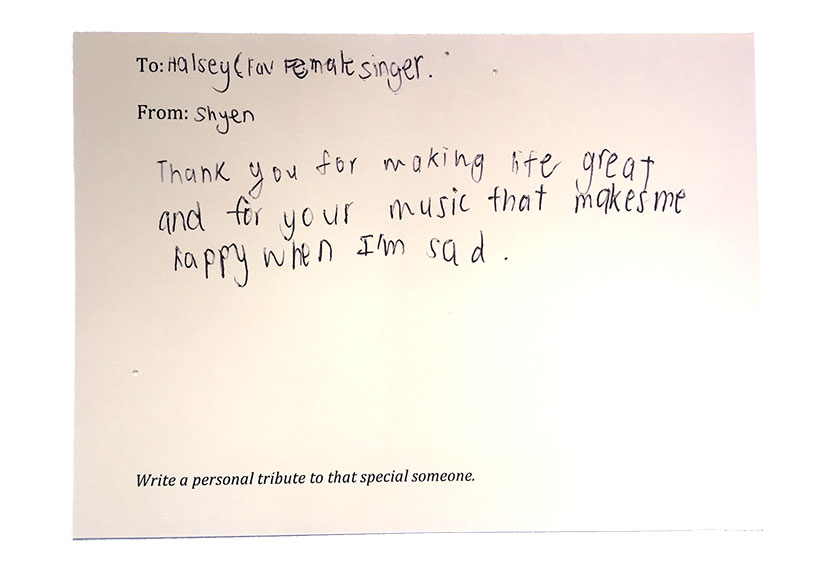 To: Halsey (Fav Female singer.
From: Shyen
Thank you for making life great
and for your music that makes me
happy when I'm sad.
Write a personal tribute to that special someone.